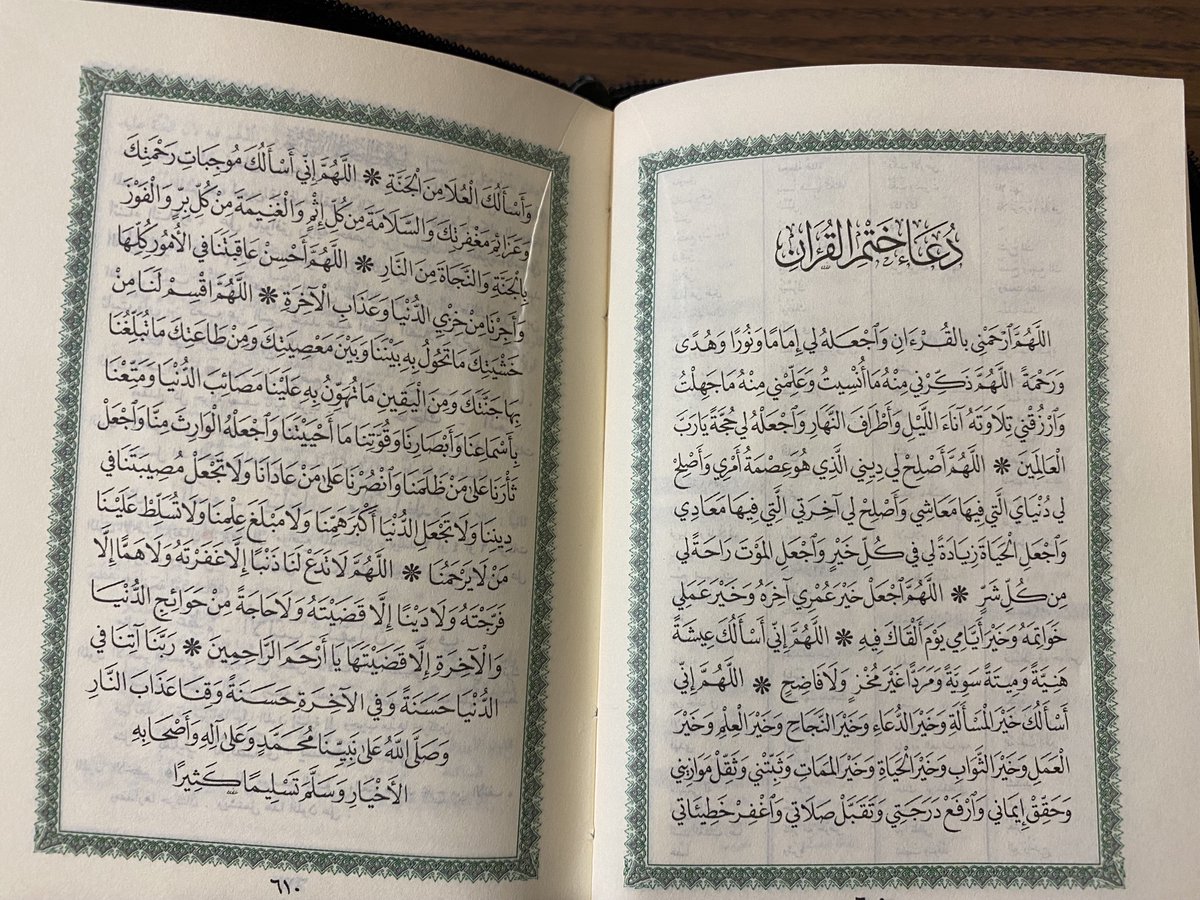 دُعَاءُ خَتْمِ القُرْآنِ
اللَّهُمَّ ٱرْحَمْنِي بالقُرْءَانِ وَٱجْعَلهُ لِي إِمَامًا وَنُورًا وَهُدًى
وَرَحْمَةً اللَّهُمَّ ذَكِّرْنِي مِنْهُ مَا أُنْسِيتُ وَعَلِّمْنِي مِنْهُ مَا جَهِلْتُ
وَٱرْزُقْنِي تِلَاوَتَهُ آنَاءَ اللَّيْلِ وَأَطْرَافَ النَّهَارِ وَٱجْعَلْهُ لِي حُجَّةً يَارَبَّ
العَالَمِينَ ❋ اللَّهُمَّ أَصْلِحْ لِي دِينِي الَّذِي هُوَ عِصْمَةُ أَمْرِي وَأَصْلِحْ
لِي دُنْيَايَ الَّتِي فِيهَا مَعَاشِي وَأَصْلِحْ لِي آخِرَتِي الَّتِي فِيهَا مَعَادِي
وَٱجْعَلِ الحَيَاةَ زِيَادَةً لِي فِي كُلِّ خَيْرٍ وَٱجْعَلِ المَوْتَ رَاحَةً لِي
مِن كُلِّ شَرٍّ ❋ اللَّهُمَّ ٱجْعَلْ خَيْرَ عُمْرِي آخِرَهُ وَخَيْرَ عَمَلِي
خَوَاتِمَهُ وَخَيْرَ أَيَّامِي يَوْمَ أَلْقَاكَ فِيهِ ❋ اللَّهُمَّ إِنِّي أَسْأَلُكَ عِيشَةً
هَنِيَّةً وَمِيتَةً سَوِيَّةً وَمَرَدًّا غَيْرَ مُخْزٍ وَلَا فَاضِحٍ ❋ اللَّهُمَّ إِنِّي
أَسْأَلُكَ خَيْرَ المَسْأَلةِ وَخَيْرَ الدُّعَاءِ وَخَيْرَ النَّجَاحِ وَخَيْرَ العِلْمِ وَخَيْرَ
العَمَلِ وَخَيْرَ الثَّوَابِ وَخَيْرَ الحَيَاةِ وَخَيْرَ المَمَاتِ وَثَبِّتْنِي وَثَقِّلْ مَوَازِينِي
وَحَقِّقْ إِيمَانِي وَٱرْفَعْ دَرَجَتِي وَتَقَبَّلْ صَلَاتِي وَٱغْفِرْ خَطِيئَاتِي
وَأَسْأَلُكَ العُلَا مِنَ الجَنَّةِ ❋ اللَّهُمَّ إِنِّي أَسْأَلُكَ مُوجِبَاتِ رَحْمَتِكَ
وَعَزَائِمَ مَغْفِرَتِكَ وَالسَّلَامَةَ مِن كُلِّ إِثْمٍ وَالْغَنِيمَةَ مِنْ كُلِّ بِرٍّ وَالْفَوْزَ
بِالْجَنَّةِ وَالنَّجَاةَ مِنَ النَّارِ ❋ اللَّهُمَّ أَحْسِنْ عَاقِبَتَنَا فِي الأُمُورِ كُلِّهَا
وَأَجِرْنَا مِنْ خِزْيِ الدُّنْيَا وَعَذَابِ الْآخِرَةِ ❋ اللَّهُمَّ اقْسِمْ لَنَا مِنْ
خَشْيَتِكَ مَا تَحُولُ بِهِ بَيْنَنَا وَبَيْنَ مَعْصِيَتِكَ وَمِنْ طَاعَتِكَ مَا تُبَلِّغُنَا
بِهَا جَنَّتَكَ وَمِنَ الْيَقِينِ مَا تُهَوِّنُ بِهِ عَلَيْنَا مَصَائِبَ الدُّنْيَا وَمَتِّعْنَا
بِأَسْمَاعِنَا وَأَبْصَارِنَا وَقُوَّتِنَا مَا أَحْيَيْتَنَا وَٱجْعَلْهُ الْوَارِثَ مِنَّا وَٱجْعَلْ
ثَأْرَنَا عَلَى مَنْ ظَلَمَنَا وَٱنْصُرْنَا عَلَى مَنْ عَادَانَا وَلَا تَجْعَلْ مُصِيبَتَنَا فِي
دِينِنَا وَلَا تَجْعَلِ الدُّنْيَا أَكْبَرَ هَمِّنَا وَلَا مَبْلَغَ عِلْمِنَا وَلَا تُسَلِّطْ عَلَيْنَا
مَنْ لَا يَرْحَمُنَا ❋ اللَّهُمَّ لَا تَدَعْ لَنَا ذَنْبًا إِلَّا غَفَرْتَهُ وَلَا هَمًّا إِلَّا
فَرَّجْتَهُ وَلَا دَيْنًا إِلَّا قَضَيْتَهُ وَلَا حَاجَةً مِنْ حَوَائِجِ الدُّنْيَا
وَالْآخِرَةِ إِلَّا قَضَيْتَهَا يَا أَرْحَمَ الرَّاحِمِينَ ❋ رَبَّنَا آتِنَا فِي
الدُّنْيَا حَسَنَةً وَفِي الآخِرَةِ حَسَنَةً وَقِنَا عَذَابَ النَّارِ
وَصَلَّى اللَّهُ عَلَى نَبِيِّنَا مُحَمَّدٍ وَعَلَى آلِهِ وَأَصْحَابِهِ
الأَخْيَارِ وَسَلَّمَ تَسْلِيمًا كَثِيرًا
٦١٠